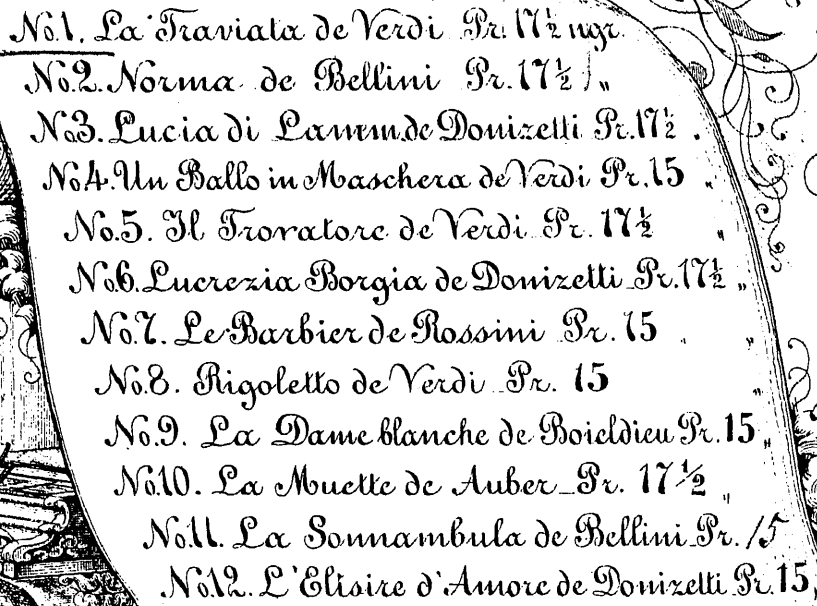 No.1. La Traviata de Verdi Pr. 17½ ngr.
No.2. Norma de Bellini Pr. 17½ "
No.3. Lucia di Lamm. de Donizetti Pr. 17½ "
No.4. Un Ballo in Maschera de Verdi Pr. 15 "
No.5. Il Trovatore de Verdi Pr. 17½ "
No.6. Lucrezia Borgia de Donizetti Pr. 17½ "
No.7. Le Barbier de Rossini Pr. 15 "
No.8. Rigoletto de Verdi Pr. 15 "
No.9. La Dame blanche de Boieldieu Pr. 15 "
No.10. La Muette de Auber Pr. 17½ "
No.11. La Sonnambula de Bellini Pr. 15
No.12. L'Elisire d'Amore de Donizetti Pr. 15 "